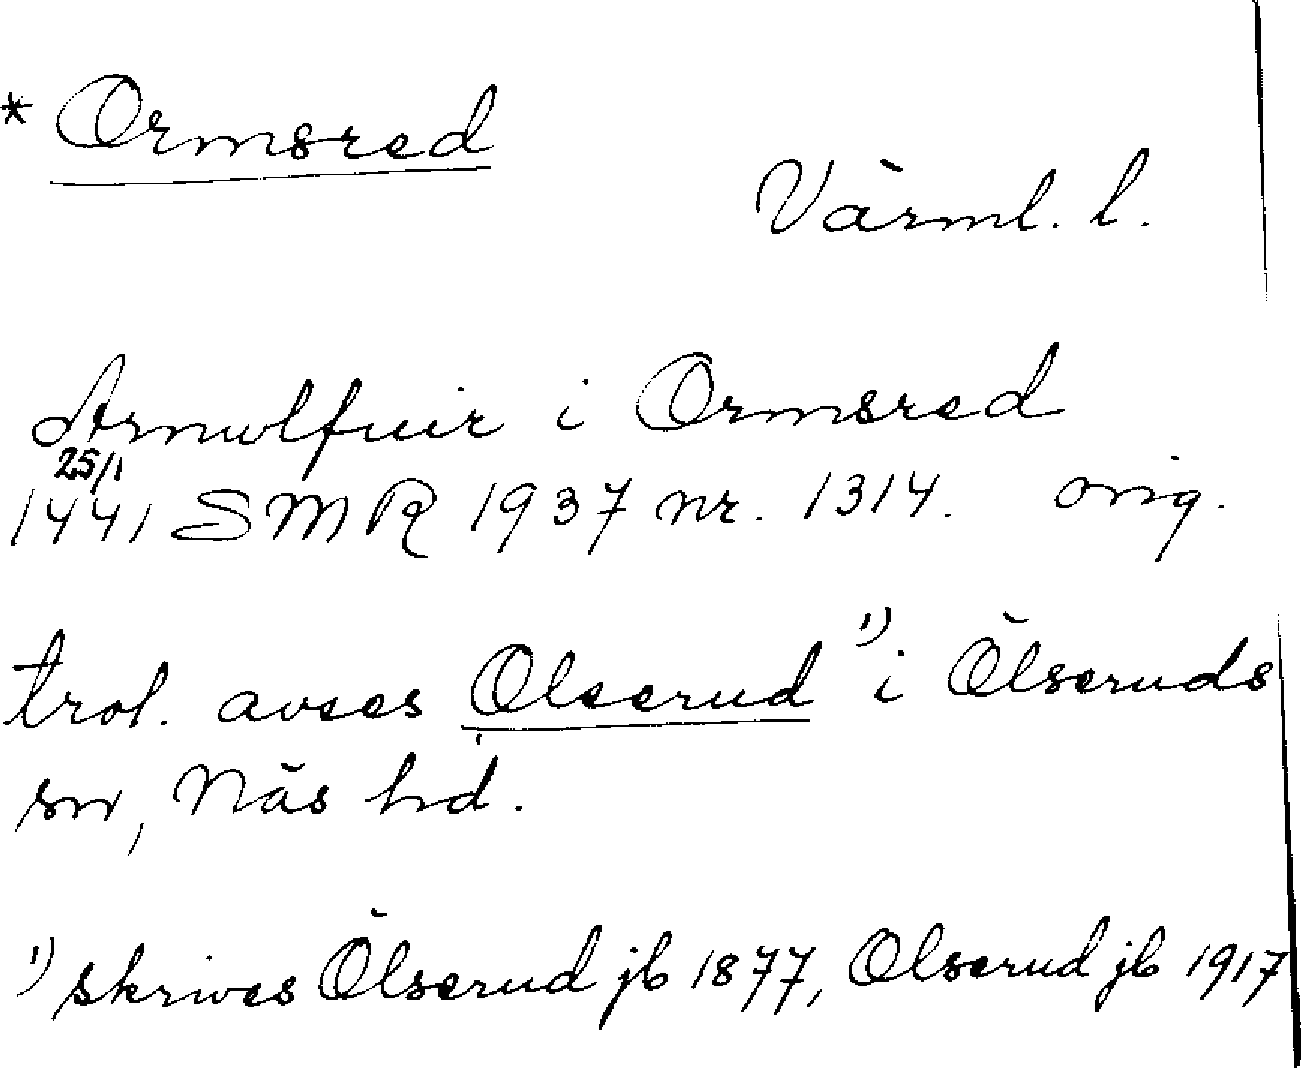 * Ormsred
Värml. l.
Arnulfuir i Ormsred
25/1
1441 SMR 1937 nr. 1314. orig.
trol. avses Olserud 1) i Ölseruds
sn, Näs hd.
1) skrives Ölserud jb 1877, Olserud jb 1917